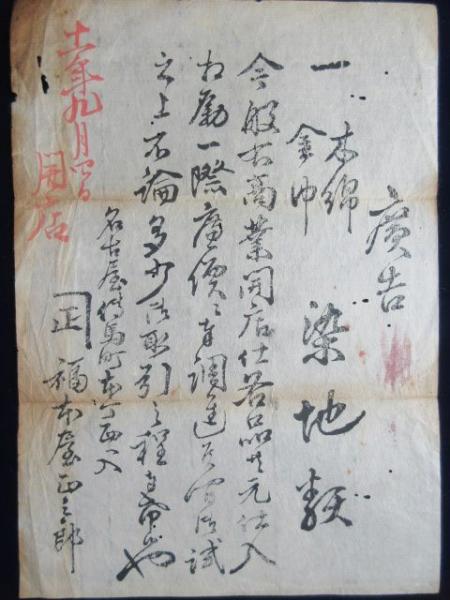 廣告
一 木綿 金巾 染地類
今般右商業開店仕各品共元仕入
相勵一際廉價ニ奉調進候間御試
之上不論多少御取引之程奉希也
名古屋傳馬町本丁西入
正 福本屋正三郎
十一年九月四日
開店